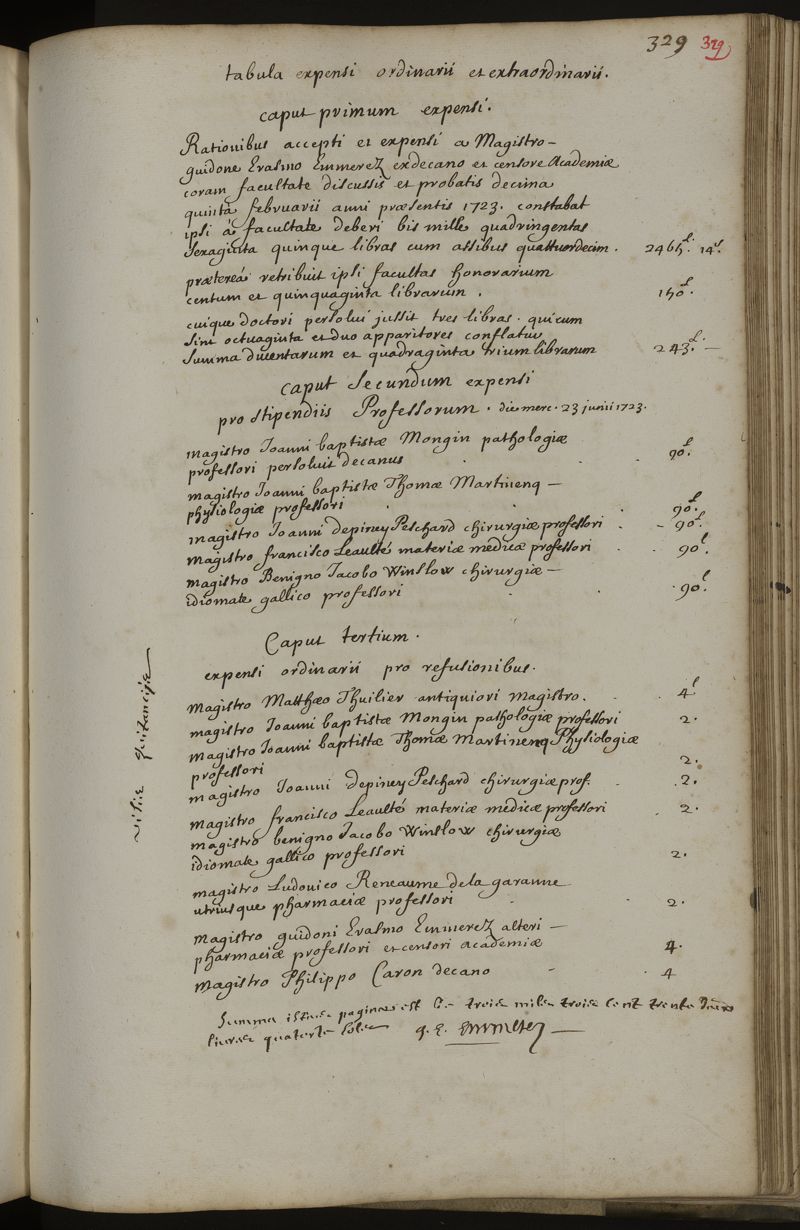 329 329
tabula expensi ordinarii et extraordinarii.
caput primum expensi.
Rationibus accepti et expensi a Magistro-
guidone Erasmo Emmerez exdecano et censore Academiæ
coram facultate discussis et probatis decima
quinta februarii anni præsentis 1723. constabat
ipsi à facultate deberi bis mille quadringentas
sexaginta quinque libras cum assibus quattuordecim. 2465.l 14.s
prætereà retribuit ipsi facultas honorarium
centum et quinquaginta librarum. 150.l
cuique doctori persolui jussit tres libras. qui cum
sint octuaginta et duo apparitores conflatur
summa ducentarum et quadraginta trium librarum 243.l —
caput secundum expensi
pro stipendiis Professorum. die merc. 23 junii 1723.
magistro Joanni baptistæ Mongin pathologiæ
professori persoluit decanus . . . 90.l
magistro Joanni baptistæ Thomæ Martinenq —
physiologiæ professori . . . 90.l
magistro Joanni depiney Peschard chirurgiæ professori . - 90.l
magistro francisco Leaulté materiæ medicæ professori . . 90.l
magistro Benigno Jacobo Winslow chirurgiæ —
idiomate gallico professori . . . 90.l
Caput tertium.
expensi ordinarii pro refusionibus.
magistro Matthæo Thuilier antiquiori magistro. . . 4.l
magistro Joanni baptistæ Mongin pathologiæ professori 2.
magistro Joanni baptistæ Thomæ Martinenq Physiologiæ
professori 2.
magistro Joanni depiney Peschard chirurgiæ prof. . . 2.
magistro francisco Leaulté materiæ medicæ professori . 2.
magistro benigno Jacobo Winslow chirurgiæ
idiomate gallico professori 2.
magistro Ludovico Reneaume dela garanne
utriusque pharmaciæ professori . . 2.
magistro guidoni Erasmo Emmerez alteri —
pharmaciæ professori et censori academiæ 4.
magistro Philippo Caron decano - . 4
Summa istius paginæ est De trois mile trois cent trente
livres quatorze soles G. E. Emmerez —